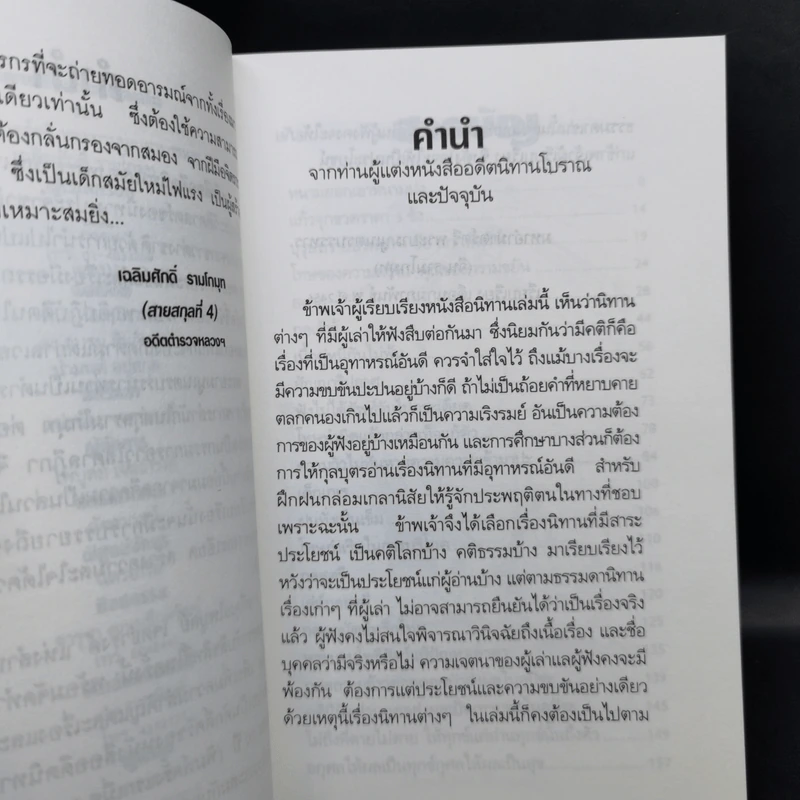 รกรที่จะถ่ายทอดอารมณ์จากทั้งเรื่อง
เดียวเท่านั้น ซึ่งต้องใช้ความสามารถ
ต้องกลั่นกรองจากสมอง จากฝีมือ
ซึ่งเป็นเด็กสมัยใหม่ไฟแรง เป็นผู้
เหมาะสมยิ่ง...
เฉลิมศักดิ์ รามโกมุท
(สายสกุลที่ 4)
อดีตตำรวจหลวงฯ
คำนำ
จากท่านผู้แต่งหนังสืออดีตนิทานโบราณ
และปัจจุบัน
ข้าพเจ้าผู้เรียบเรียงหนังสือนิทานเล่มนี้ เห็นว่านิทาน
ต่างๆ ที่มีผู้เล่าให้ฟังสืบต่อกันมา ซึ่งนิยมกันว่ามีคติก็คือ
เรื่องที่เป็นอุทาหรณ์อันดี ควรจำใส่ใจไว้ ถึงแม้บางเรื่องจะ
มีความขบขันปะปนอยู่บ้างก็ดี ถ้าไม่เป็นถ้อยคำที่หยาบคาย
ตลกคนองเกินไปแล้วก็เป็นความเริงรมย์ อันเป็นความต้อง
การของผู้ฟังอยู่บ้างเหมือนกัน และการศึกษาบางส่วนก็ต้อง
การให้กุลบุตรอ่านเรื่องนิทานที่มีอุทาหรณ์อันดี สำหรับ
ฝึกฝนกล่อมเกลานิสัยให้รู้จักประพฤติตนในทางที่ชอบ
เพราะฉะนั้น ข้าพเจ้าจึงได้เลือกเรื่องนิทานที่มีสาระ
ประโยชน์ เป็นคติโลกบ้าง คติธรรมบ้าง มาเรียบเรียงไว้
หวังว่าจะเป็นประโยชน์แก่ผู้อ่านบ้าง แต่ตามธรรมดานิทาน
เรื่องเก่าๆ ที่ผู้เล่า ไม่อาจสามารถยืนยันได้ว่าเป็นเรื่องจริง
แล้ว ผู้ฟังคงไม่สนใจพิจารณาวินิจฉัยถึงเนื้อเรื่อง และชื่อ
บุคคลว่ามีจริงหรือไม่ ความเจตนาของผู้เล่าแลผู้ฟังคงจะมี
พ้องกัน ต้องการแต่ประโยชน์และความขบขันอย่างเดียว
ด้วยเหตุนี้เรื่องนิทานต่างๆ ในเล่มนี้ก็คงต้องเป็นไปตาม